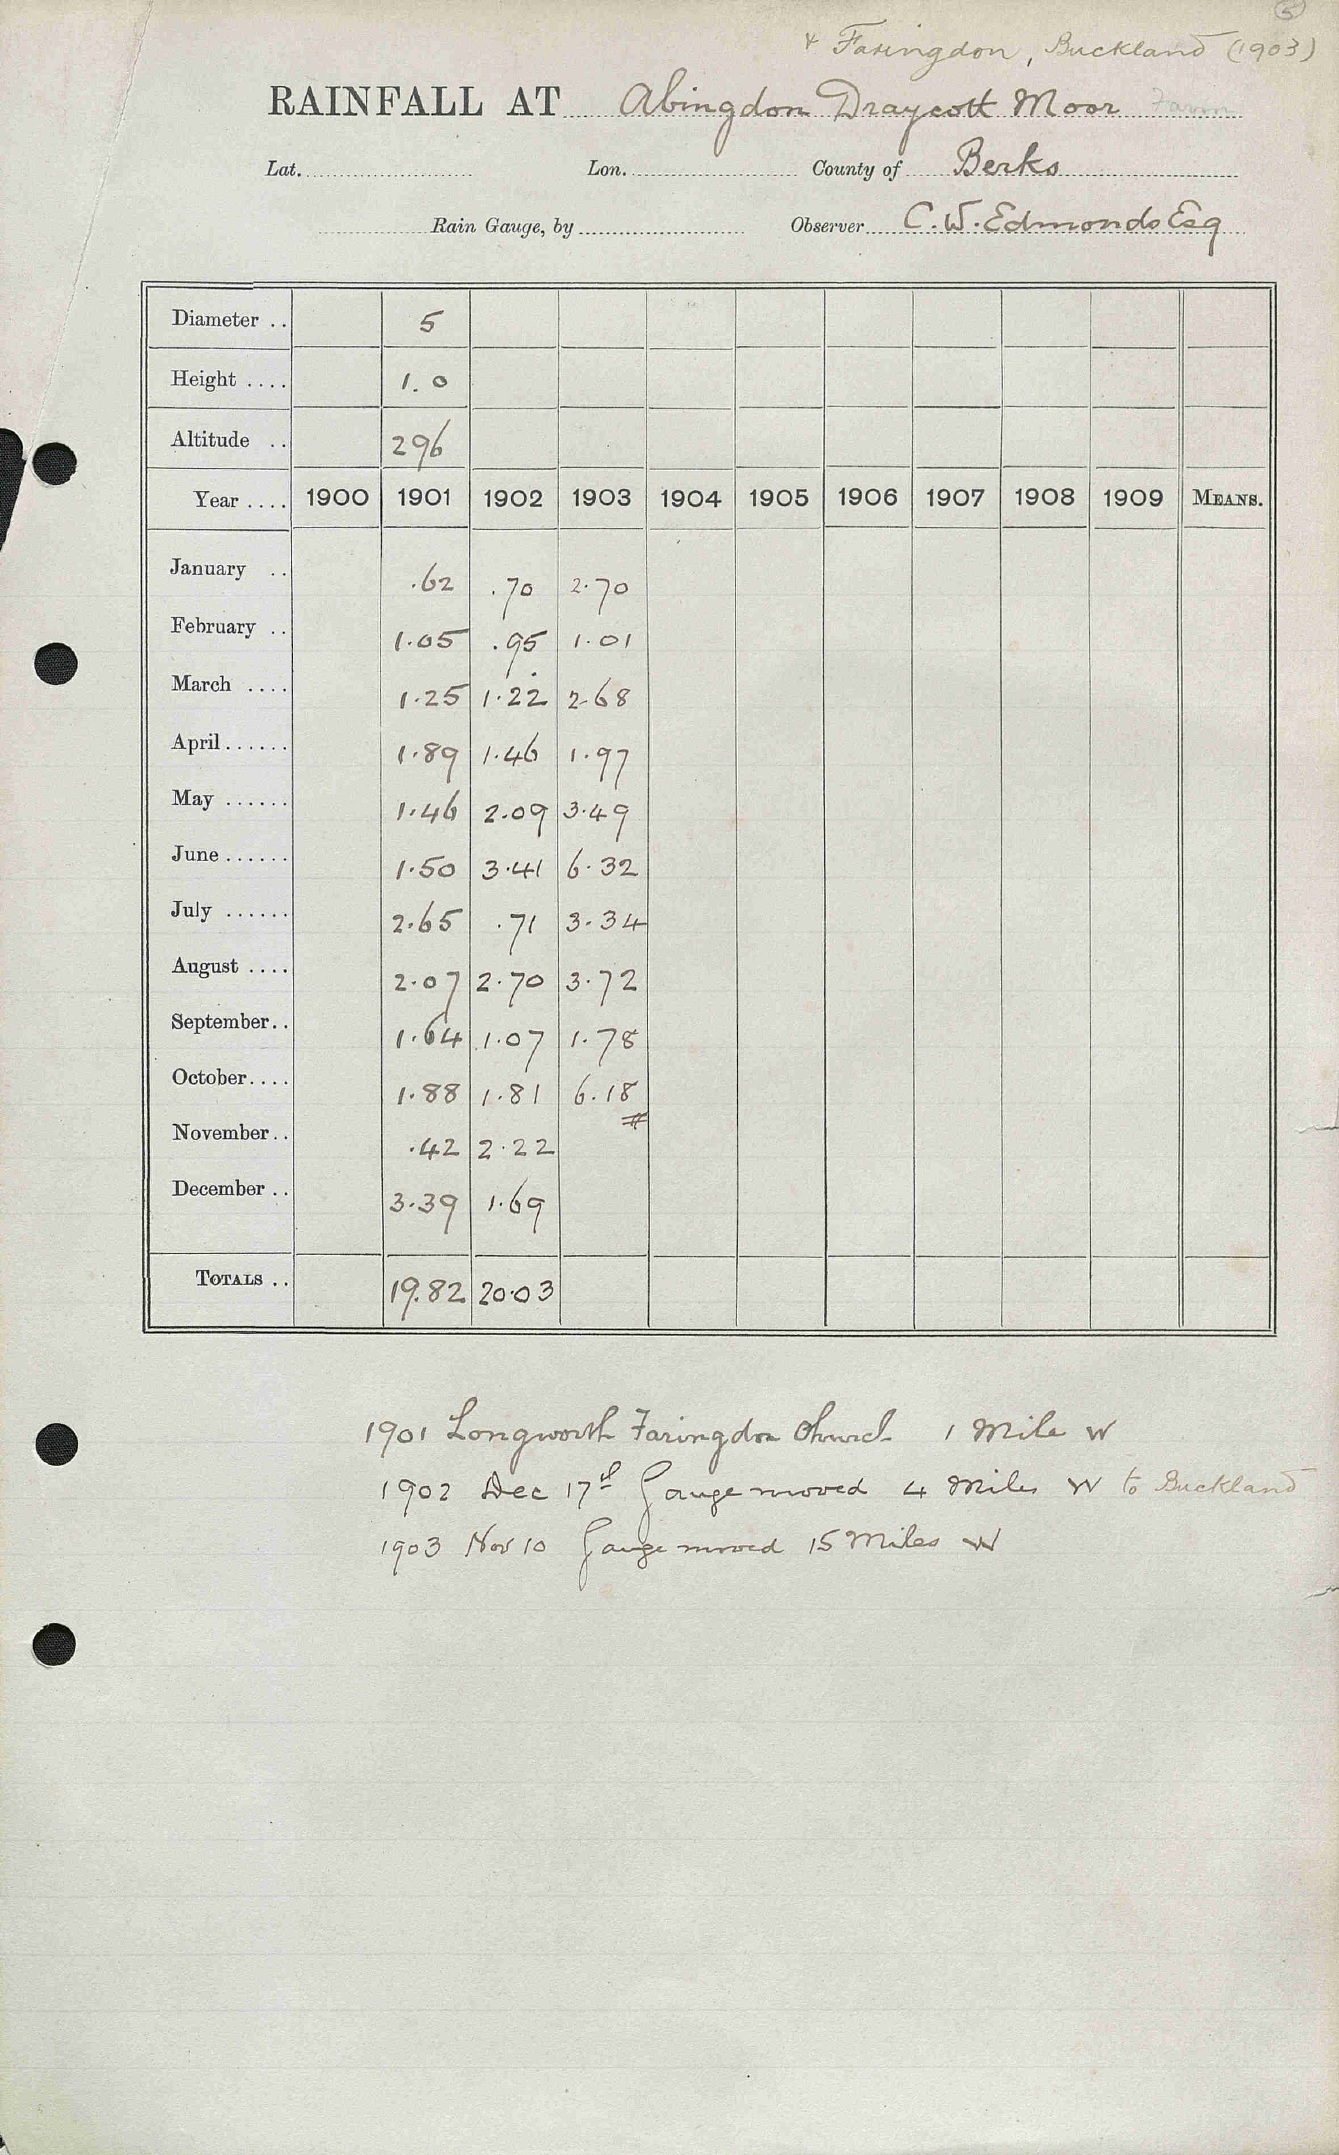 5
& Faringdon, Buckland (1903)
RAINFALL AT Abingdon Draycott Moor Farm
Lat. Lon. County of Berks
Rain Gauge, by Observer C. W. Edmonds Esq
Diameter .. 5
Height .... 1.0
Altitude .. 296
Year .... 1900 1901 1902 1903 1904 1905 1906 1907 1908 1909 MEANS.
January .. .62 .70 2.70
February .. 1.05 .95 1.01
March .... 1.25 1.22 2.68
April ...... 1.89 1.46 1.97
May ...... 1.46 2.09 3.49
June ...... 1.50 3.41 6.32
July ...... 2.65 .71 3.34
August .... 2.07 2.70 3.72
September.. 1.64 1.07 1.78
October.... 1.88 1.81 6.18
#
November.. .42 2.22
December .. 3.39 1.69
TOTALS .. 19.82 20.03
1901 Longworth Faringdon Church 1 Mile W
1902 Dec 17th Gauge moved 4 Miles W to Buckland
1903 Nov 10 Gauge moved 15 Miles W